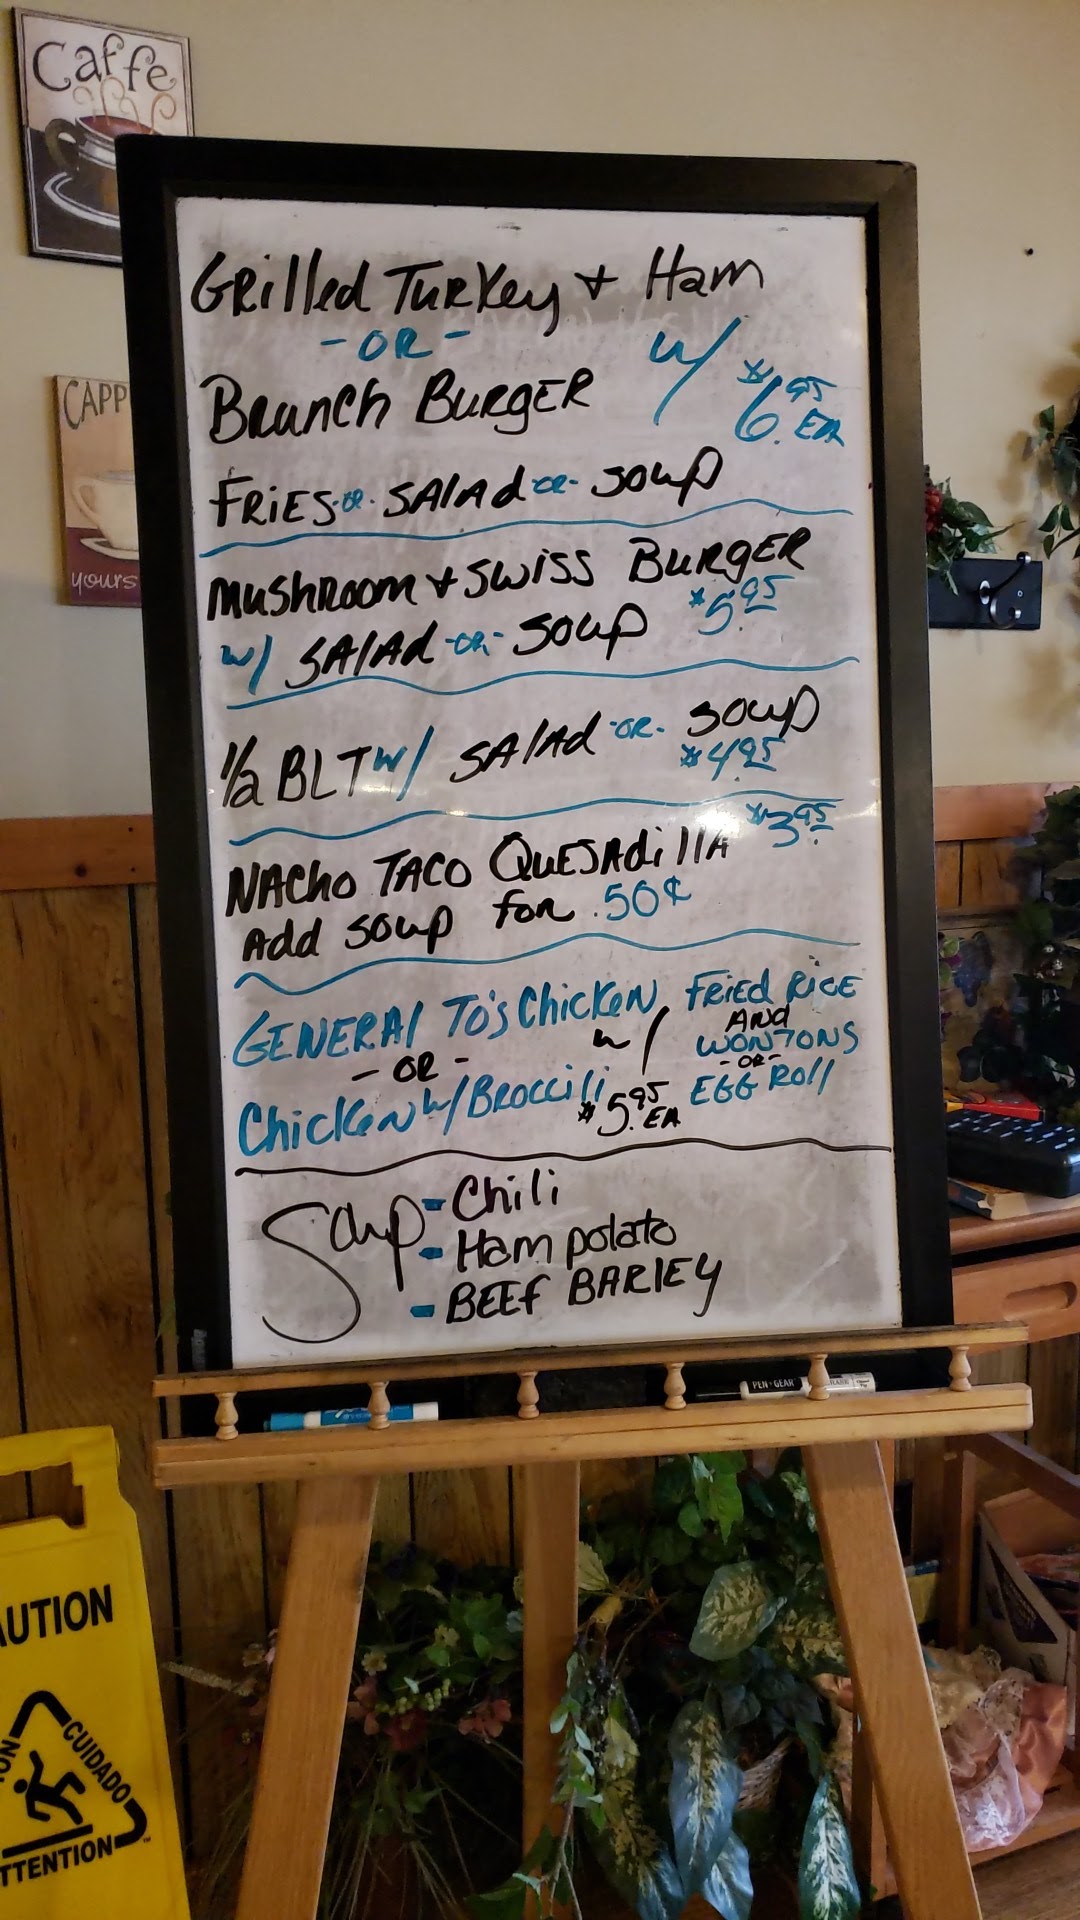 Caffe
CAPP
yours
Grilled Turkey + Ham
- OR -
Brunch Burger w/ $6.95 EA
Fries -or- Salad -or- Soup
Mushroom + Swiss Burger
w/ Salad -or- Soup $5.95
1/2 BLT w/ Salad -or- Soup
$4.95
Nacho Taco Quesadilla $3.95
Add Soup for .50¢
General To's Chicken w/ Fried Rice
AND
Wontons
- OR -
Egg Roll
- OR -
Chicken w/ Broccili $5.95 EA
Soup - Chili
- Ham potato
- Beef Barley
PEN+GEAR
AUTION
CUIDADO
TTENTION